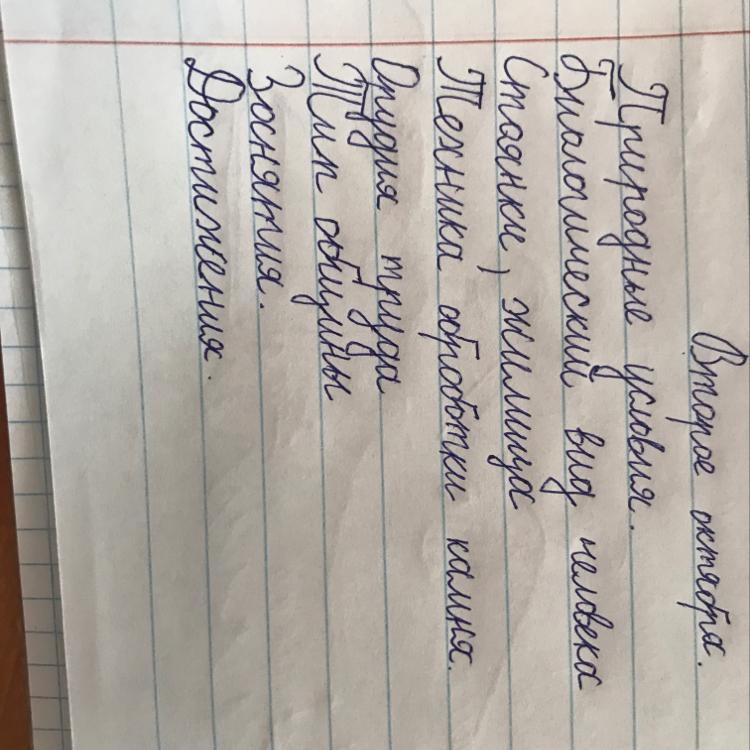 Второе октября.
Природные условия.
Биологический вид человека
Стоянки, жилища
Техника обработки камня.
Орудия труда
Тип общины
Зоснятия.
Достижения.